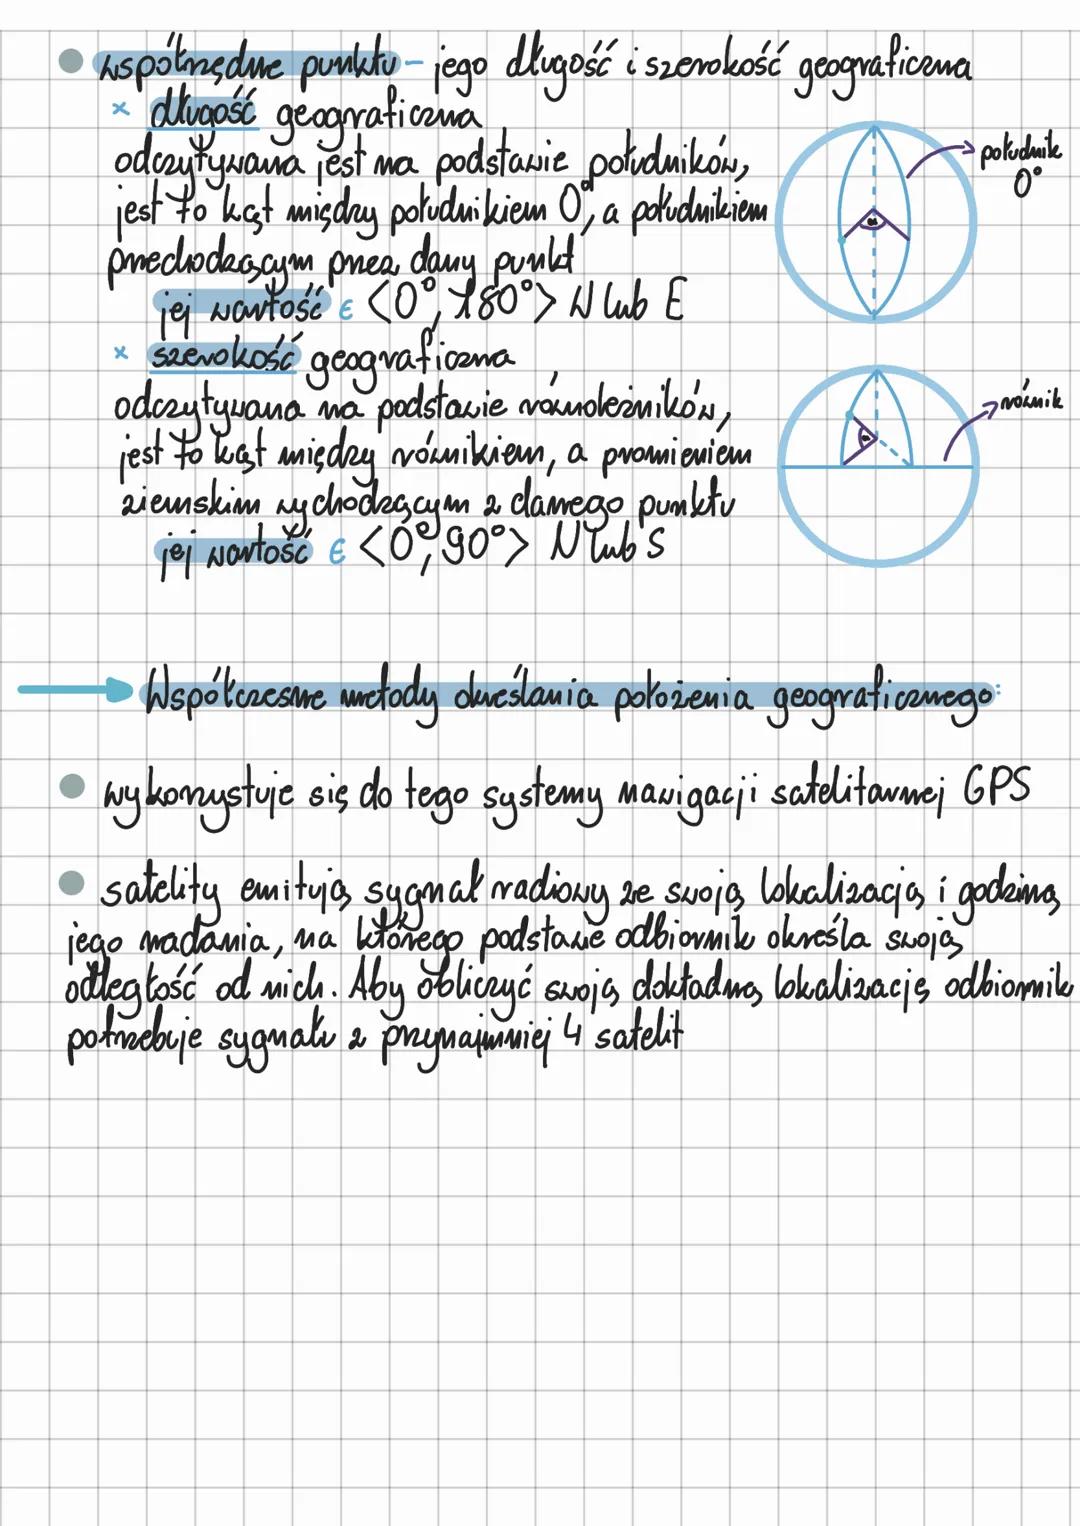 współrzędne punktu - jego długość i szerokość geograficzna
× długość geograficzna
odczytywana jest na podstawie południków,
jest to kąt między południkiem 0°, a południkiem
przechodzącym przez dany punkt
jej wartość ∈ <0°, 180°> W lub E
południk
0°
× szerokość geograficzna
odczytywana na podstawie równoleżników,
jest to kąt między równikiem, a promieniem
ziemskim wychodzącym z danego punktu
jej wartość ∈ <0°, 90°> N lub S
równik
Współczesne metody określania położenia geograficznego:
wykorzystuje się do tego systemy nawigacji satelitarnej GPS
satelity emitują sygnał radiowy ze swoją lokalizacją i godziną
jego nadania, na którego podstawie odbiornik określa swoją
odległość od nich. Aby obliczyć swoją dokładną lokalizację odbiornik
potrzebuje sygnału z przynajmniej 4 satelit